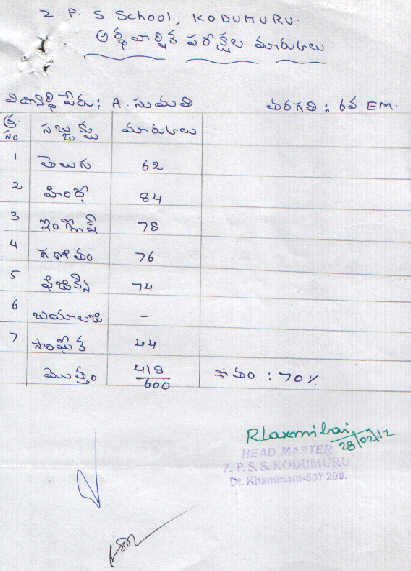 Z P. S School, KODUMURU.
అర్ధవార్షిక పరీక్షల మార్కులు
విద్యార్థి పేరు: A. సుమతి తరగతి : 6వ EM.
క్ర. సం సబ్జెక్టు మార్కులు
1 తెలుగు 62
2 హిందీ 84
3 ఇంగ్లీష్ 78
4 గణితం 76
5 ఫిజిక్స్ 74
6 బయాలజి -
7 సాంఘీక 44
మొత్తం 418/600 శాతం : 70%
R Laxmi bai
28/02/12
HEAD MASTER
Z. P. S. S. KODUMURU
Dt. Khammam-507 209.